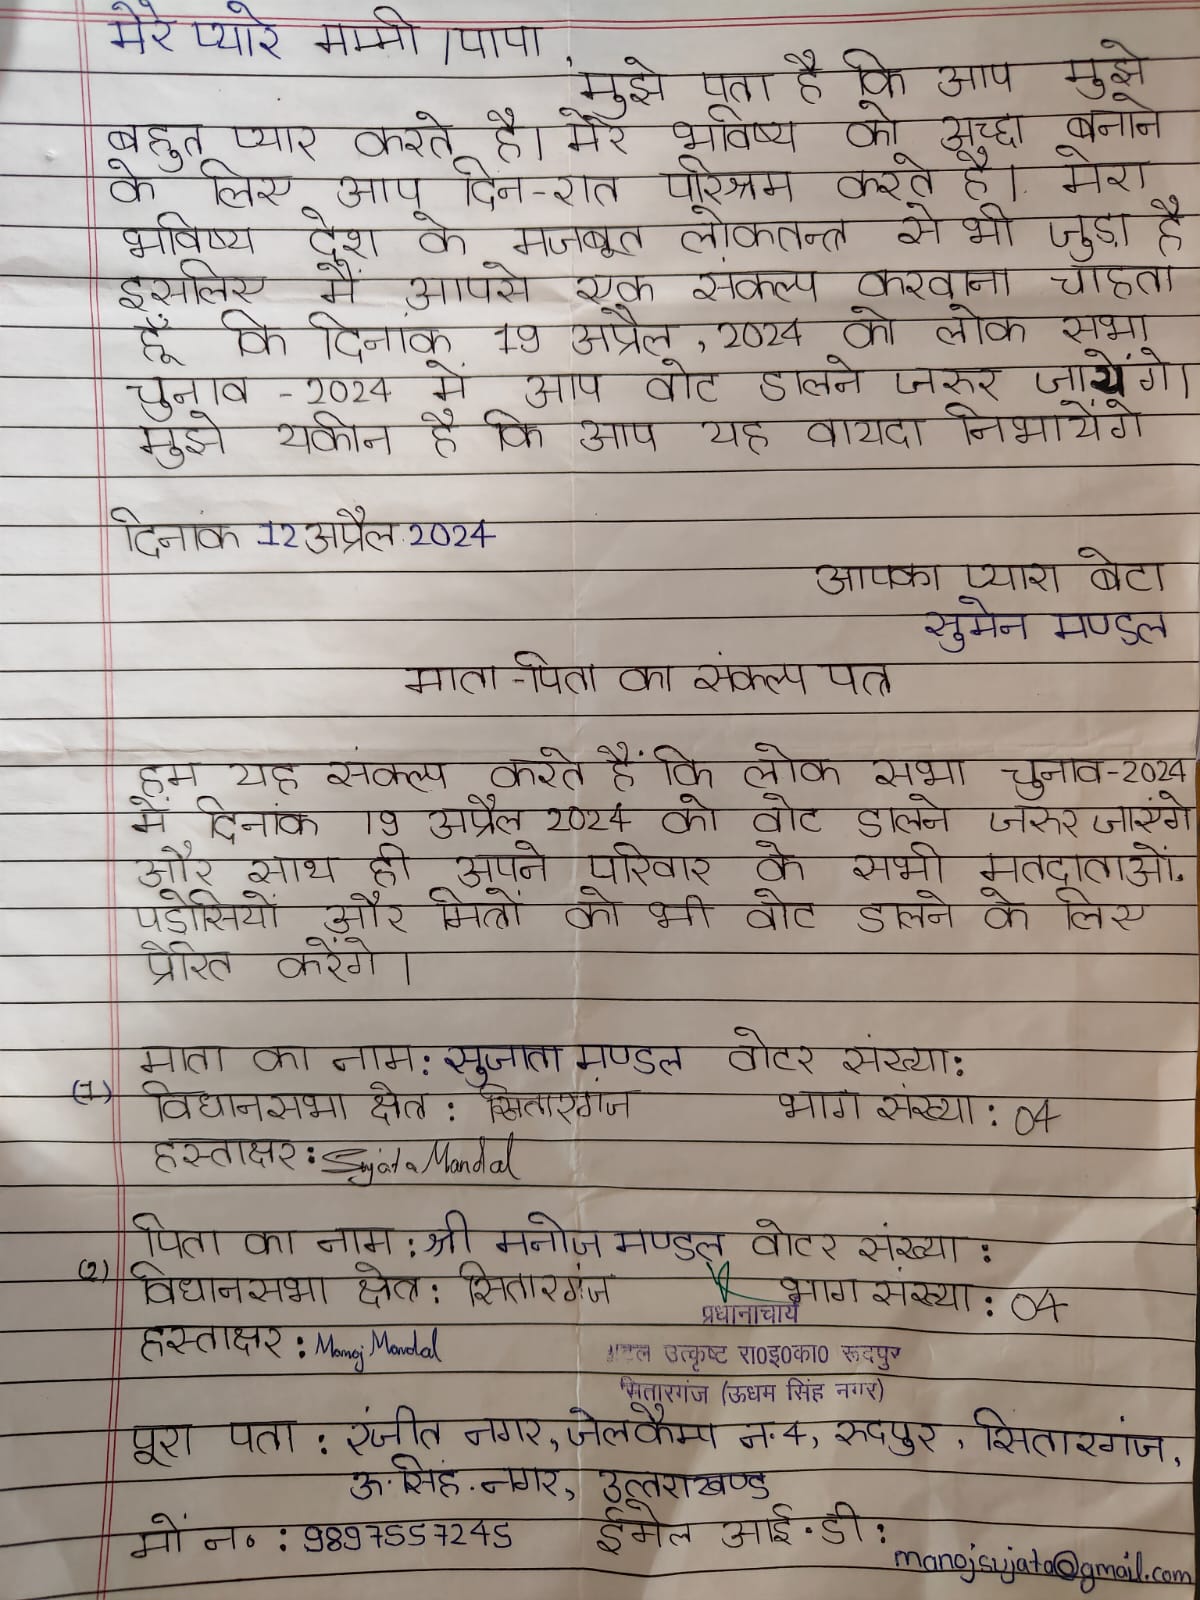 मेरे प्यारे मम्मी /पापा,
मुझे पता है कि आप मुझे
बहुत प्यार करते है। मेरे भविष्य को अच्छा बनाने
के लिए आप दिन-रात परिश्रम करते है। मेरा
भविष्य देश के मजबूत लोकतन्त्र से भी जुड़ा है
इसलिए मैं आपसे एक संकल्प करवाना चाहता
हूँ कि दिनांक 19 अप्रैल, 2024 को लोक सभा
चुनाव -2024 में आप वोट डालने जरुर जायेंगे।
मुझे यकीन है कि आप यह वायदा निभायेंगे
दिनांक 12 अप्रैल 2024
आपका प्यारा बेटा
सुमेन मण्डल
माता-पिता का संकल्प पत्र
हम यह संकल्प करते हैं कि लोक सभा चुनाव-2024
में दिनांक 19 अप्रैल 2024 को वोट डालने जरुर जाएंगे
और साथ ही अपने परिवार के सभी मतदाताओं,
पड़ोसियों और मित्रों को भी वोट डालने के लिए
प्रेरित करेंगे।
माता का नाम: सुजाता मण्डल वोटर संख्या:
(1) विधानसभा क्षेत्र: सितारगंज भाग संख्या: 04
हस्ताक्षर: Sujata Mandal
पिता का नाम: श्री मनोज मण्डल वोटर संख्या:
(2) विधानसभा क्षेत्र: सितारगंज भाग संख्या: 04
प्रधानाचार्य
हस्ताक्षर: Manoj Mandal
उत्कृष्ट रा०इ०का० रूदपुर
सितारगंज (ऊधम सिंह नगर)
पूरा पता: रंजीत नगर, जेलकैम्प न.4, रुदपुर, सितारगंज,
ऊ.सिंह.नगर, उत्तराखण्ड
मों न०: 9897557245 ईमेल आई.डी:
manojsujata@gmail.com